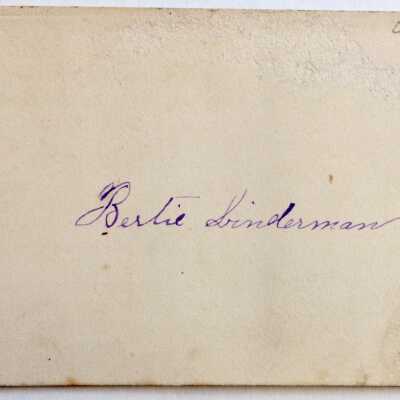 Bertie Linderman